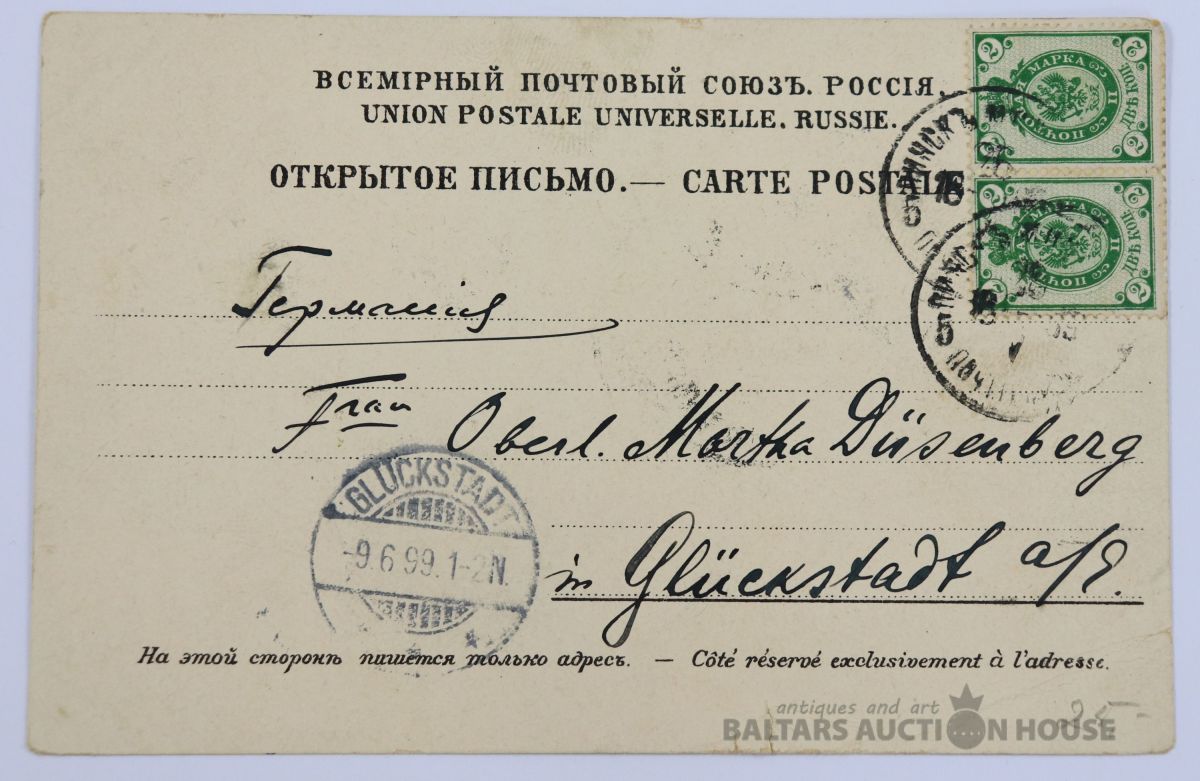 ВСЕМІРНЫЙ ПОЧТОВЫЙ СОЮЗЪ. РОССІЯ.
UNION POSTALE UNIVERSELLE. RUSSIE.
ОТКРЫТОЕ ПИСЬМО.— CARTE POSTALE
2 2
МАРКА
ПОЧТОВАЯ
ДВѢ КОП.
2 2
2 2
МАРКА
ПОЧТОВАЯ
ДВѢ КОП.
2 2
5
5
Германія
Frau Oberl. Martha Düsenberg
in Glückstadt a/E.
GLÜCKSTADT
-9.6.99.1-2N.
На этой сторонѣ пишется только адресъ. — Côté réservé exclusivement à l'adresse.
antiques and art
BALTARS AUCTION HOUSE
25-